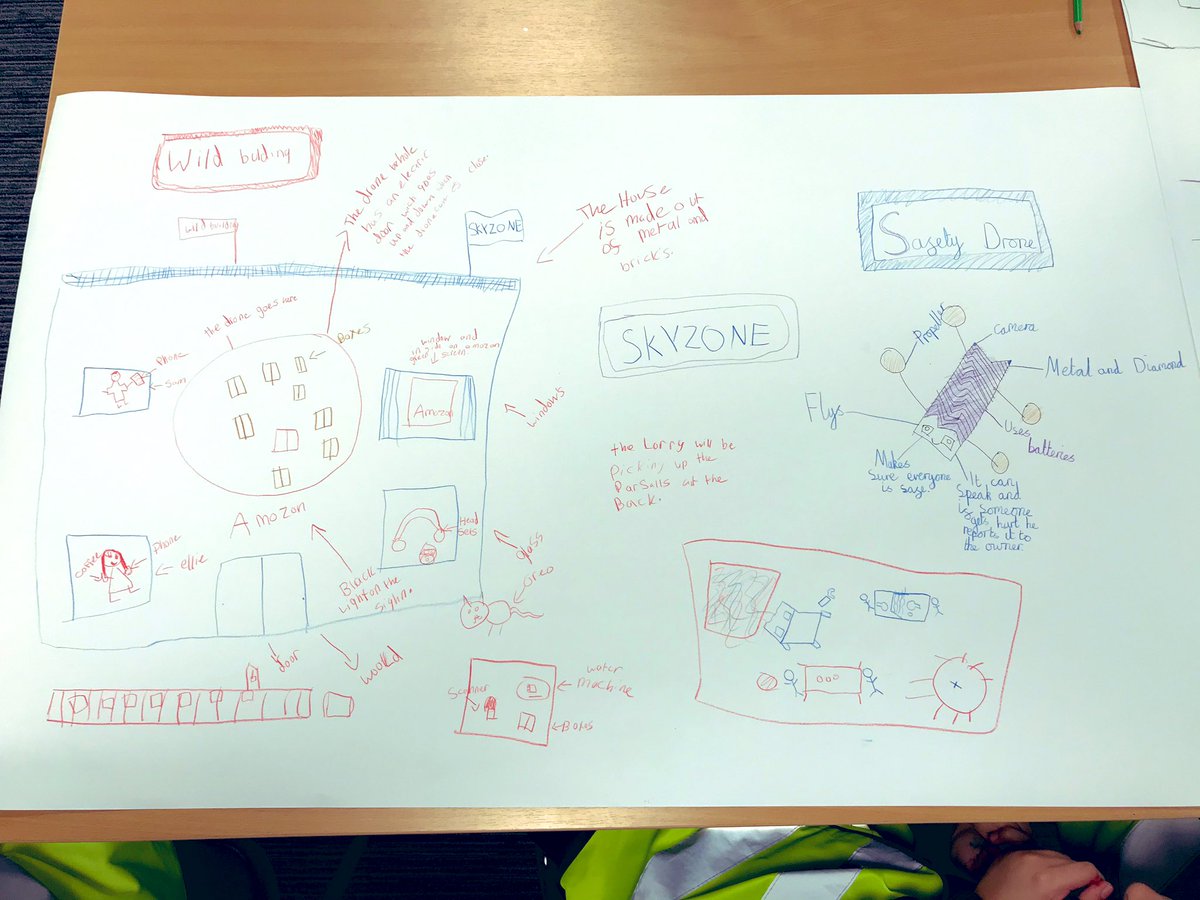 Wild bulding
The drone whole
has an electric
door wich goes
up and down when
the drone is close.
wild building
SKYZONE
The House
is made out
of metal and
bricks.
the drone goes here
Boxes
Phone
window and
amazon
screen
Amazon
windows
Amozon
Head
sets
glass
oreo
coffee
Phone
ellie
Black
light on the
sighn.
door
woold
Scanner
water
machine
Boxes
SKYZONE
the Lorry will be
picking up the
Parsalls at the
Back.
Safety Drone
Propeller
camera
Metal and Diamond
Flys
Uses
batteries
Makes
sure everyone
is safe.
It can
speak and
if someone
gets hurt he
reports it to
the owner.